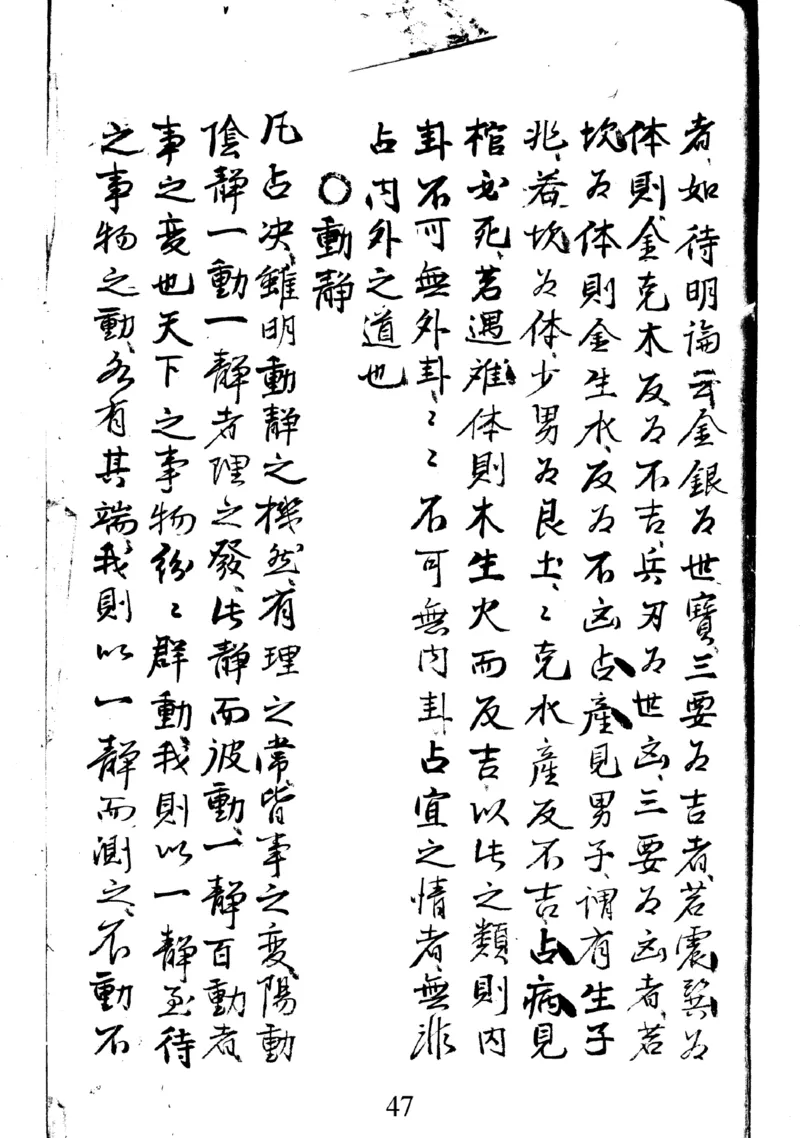 者、如待明論云金銀为世寶、三要为吉者、若震巽为
体則金克木反为不吉、兵刃为世凶、三要为凶者、若
坎为体則金生水、反为不凶占產見男子、謂有生子
兆、若坎为体、少男为艮土、〻克水產反不吉、占病見
棺必死、若遇难体則木生火而反吉以此之類則内
卦不可無外卦、〻〻不可無内卦占宜之情者、無非
占内外之道也
○動靜
凡占决、雖明動靜之機、然、有理之常、皆事之変、陽動
陰靜一動一靜者理之發、此靜而彼動、一靜百動者
事之変也天下之事物紛〻群動我則以一靜至待
之事物之動、各有其端、我則以一靜而測之、不動不
47